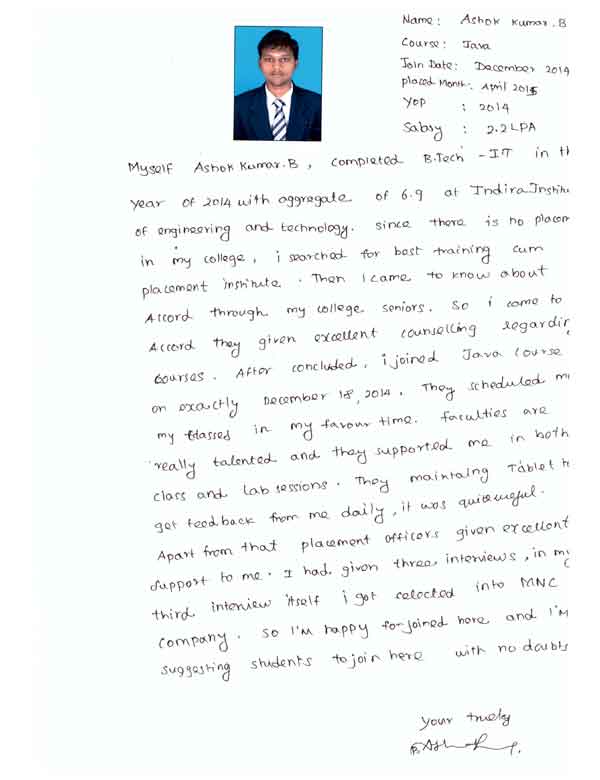 Name: Ashok Kumar.B
Course: Java
Join Date: December 2014
placed Month: April 2015
Yop : 2014
Salary : 2.2LPA
Myself Ashok Kumar.B, completed B.Tech - IT in th
year of 2014 with aggregate of 6.9 at Indira Institu
of engineering and technology. since there is no placem
in my college, i searched for best training cum
placement institute. Then I came to know about
Accord through my college seniors. So i come to
Accord they given excellent counselling regardin
courses. After concluded, i joined Java Course
on exactly December 18, 2014. They scheduled m
my classes in my favour time. faculties are
really talented and they supported me in both
class and Lab sessions. They maintaing Tablet t
get feedback from me daily, it was quite useful.
Apart from that placement officers given excellent
support to me. I had given three interviews, in my
third interview itself i got selected into MNC
company. So I'm happy for joined here and I'm
suggesting students to join here with no doubts
your truely
B. Ash